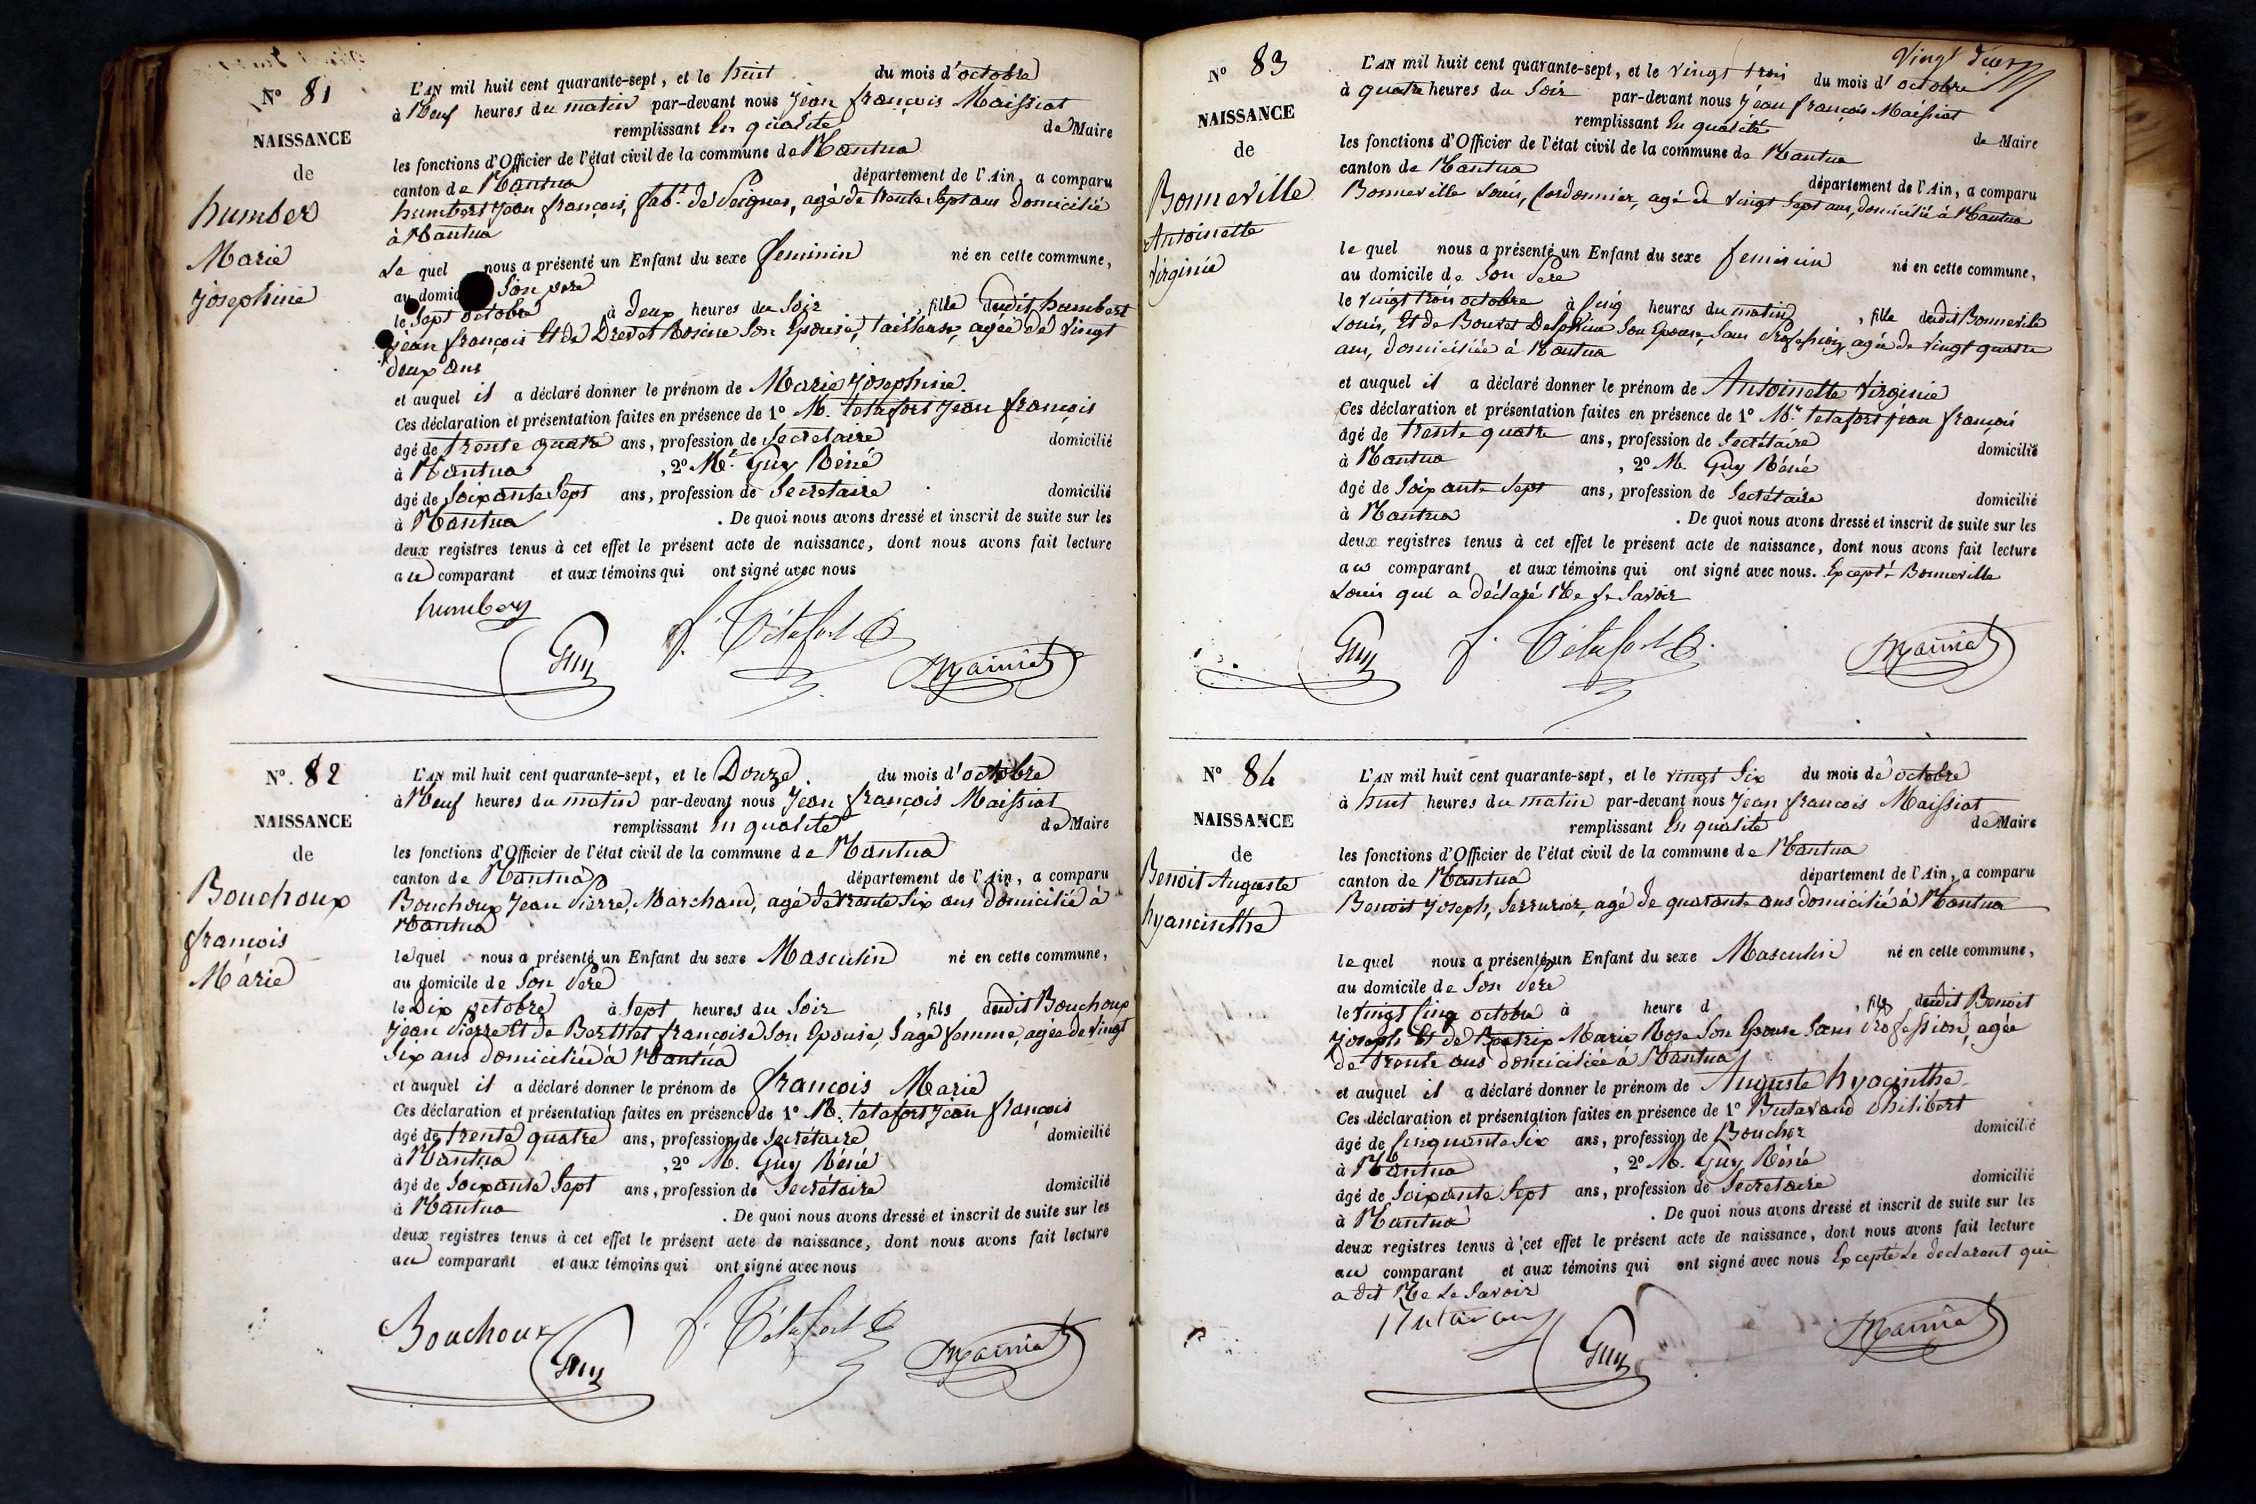 N° 81
NAISSANCE
de
humbert
Marie
josephine
L'AN mil huit cent quarante-sept, et le huit du mois d'octobre
à Neuf heures du matin par-devant nous jean françois Maissiat
remplissant En qualité de Maire
les fonctions d'Officier de l'état civil de la commune de Nantua
canton de Nantua département de l'Ain, a comparu
humbert jean françois, fabt. de Peignes, agé de trente Sept ans domicilié
à Nantua
Le quel nous a présenté un Enfant du sexe feminin né en cette commune,
au domic Son père
le Sept octobre à Deux heures du Soir , fille dudit humbert
jean françois Et de Drevet Rosine Son Epouse, tailleuse, agée de vingt
deux ans
et auquel il a déclaré donner le prénom de Marie josephine.
Ces déclaration et présentation faites en présence de 1° M. tetafort jean françois
âgé de trente quatre ans, profession de Secretaire domicilié
à Nantua , 2° Mr. Guy Réné
âgé de Soixante Sept ans, profession de Secretaire domicilié
à Nantua . De quoi nous avons dressé et inscrit de suite sur les
deux registres tenus à cet effet le présent acte de naissance, dont nous avons fait lecture
au comparant et aux témoins qui ont signé avec nous
humbert
Guy f. Tétafort Maissiat
N°. 82
NAISSANCE
de
Bouchoux
françois
Marie
L'AN mil huit cent quarante-sept, et le Douze du mois d'octobre
à Neuf heures du matin par-devant nous Jean françois Maissiat
remplissant En qualité de Maire
les fonctions d'Officier de l'état civil de la commune de Nantua
canton de Nantua département de l'Ain, a comparu
Bouchoux Jean Pierre, Marchand, agé de trente Six ans domicilié à
Nantua
lequel nous a présenté un Enfant du sexe Masculin né en cette commune,
au domicile de Son Père
le Dix octobre à Sept heures du Soir , fils dudit Bouchoux
Jean Pierre Et de Berthet françoise Son Epouse, Sage femme, agée de vingt
Six ans domiciliée à Nantua
et auquel il a déclaré donner le prénom de françois Marie
Ces déclaration et présentation faites en présence de 1° M. tetafort jean françois
âgé de trente quatre ans, profession de Secrétaire domicilié
à Nantua , 2° M. Guy Réné
âgé de Soixante Sept ans, profession de Secrétaire domicilié
à Nantua . De quoi nous avons dressé et inscrit de suite sur les
deux registres tenus à cet effet le présent acte de naissance, dont nous avons fait lecture
au comparant et aux témoins qui ont signé avec nous
Bouchoux Guy f. Tétafort Maissiat
Vingt deux
N° 83
NAISSANCE
de
Bonneville
Antoinette
Virginie
L'AN mil huit cent quarante-sept, et le vingt trois du mois d'octobre
à quatre heures du Soir par-devant nous jean françois Maissiat
remplissant En qualité de Maire
les fonctions d'Officier de l'état civil de la commune de Nantua
canton de Nantua département de l'Ain, a comparu
Bonneville Louis, Cordonnier, agé de vingt Sept ans, domicilié à Nantua
le quel nous a présenté un Enfant du sexe feminin né en cette commune,
au domicile de Son Père
le vingt trois octobre à Cinq heures du matin , fille dudit Bonneville
Louis, Et de Bouvet Delphine Son Epouse, Sans Profession, agée de vingt quatre
ans, domiciliée à Nantua
et auquel il a déclaré donner le prénom de Antoinette Virginie
Ces déclaration et présentation faites en présence de 1° Mr. tetafort jean françois
âgé de trente quatre ans, profession de Secrétaire domicilié
à Nantua , 2° M. Guy Réné
âgé de Soixante Sept ans, profession de Secrétaire domicilié
à Nantua . De quoi nous avons dressé et inscrit de suite sur les
deux registres tenus à cet effet le présent acte de naissance, dont nous avons fait lecture
au comparant et aux témoins qui ont signé avec nous. Excepté Bonneville
Louis qui a déclaré Ne Le Savoir
Guy f. Tétafort Maissiat
N° 84
NAISSANCE
de
Benoit Auguste
hyancinthe
L'AN mil huit cent quarante-sept, et le vingt Six du mois de octobre
à huit heures du matin par-devant nous Jean francois Maissiat
remplissant En qualité de Maire
les fonctions d'Officier de l'état civil de la commune de Nantua
canton de Nantua département de l'Ain, a comparu
Benoit joseph, Serrurier, agé de quarante ans domicilié à Nantua
le quel nous a présenté un Enfant du sexe Masculin né en cette commune,
au domicile de Son Père
le vingt Cinq octobre à heure d , fils dudit Benoit
joseph Et de Beatrix Marie Rose Son Epouse Sans Profession, agée
de trente ans domiciliée à Nantua
et auquel il a déclaré donner le prénom de Auguste hyacinthe
Ces déclaration et présentation faites en présence de 1° Butavand Philibert
âgé de Cinquante Six ans, profession de Boucher domicilié
à Nantua , 2° M. Guy Réné
âgé de Soixante Sept ans, profession de Secretaire domicilié
à Nantua . De quoi nous avons dressé et inscrit de suite sur les
deux registres tenus à cet effet le présent acte de naissance, dont nous avons fait lecture
au comparant et aux témoins qui ont signé avec nous Excepté Le declarant qui
a dit Ne Le Savoir
Butavand Guy Maissiat